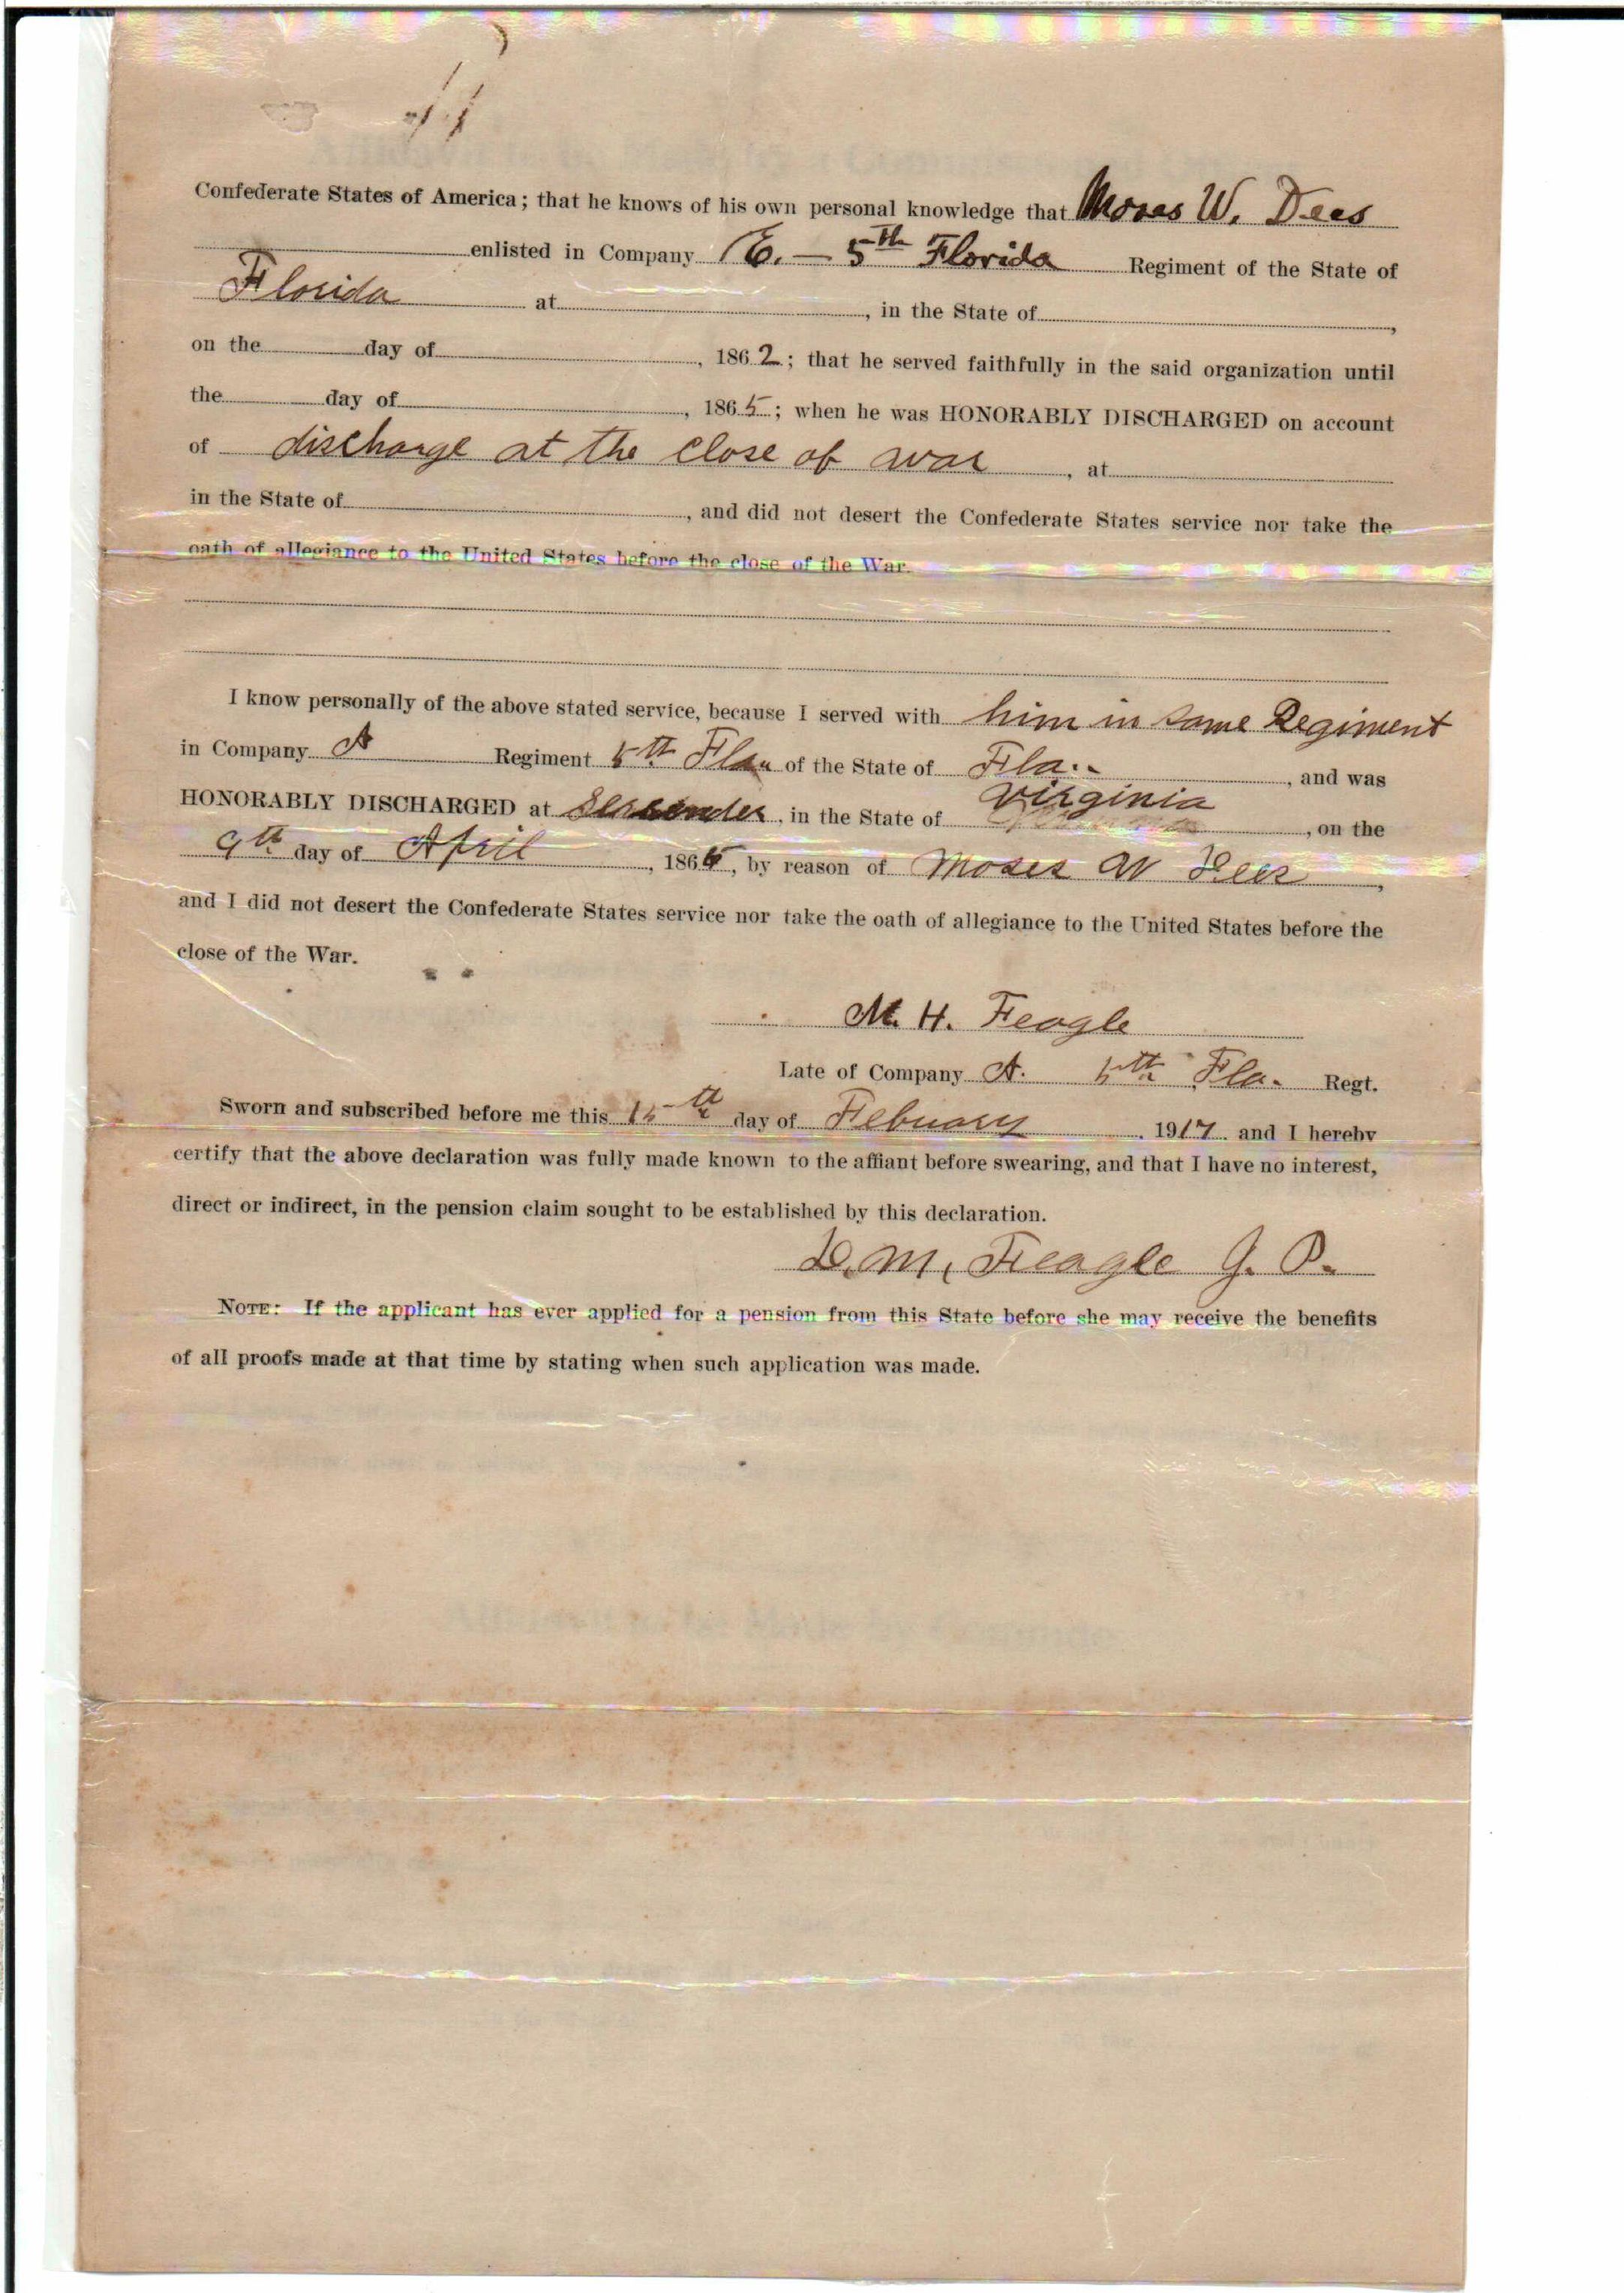 Confederate States of America; that he knows of his own personal knowledge that Moses W. Dees
enlisted in Company E. — 5th Florida Regiment of the State of
Florida at , in the State of ,
on the day of , 1862; that he served faithfully in the said organization until
the day of , 1865; when he was HONORABLY DISCHARGED on account
of discharge at the close of war , at
in the State of , and did not desert the Confederate States service nor take the
oath of allegiance to the United States before the close of the War.
I know personally of the above stated service, because I served with him in same Regiment
in Company A Regiment 5th Fla. of the State of Fla. , and was
HONORABLY DISCHARGED at Surrender, in the State of Virginia , on the
9th day of April , 1865, by reason of Moses W Dees ,
and I did not desert the Confederate States service nor take the oath of allegiance to the United States before the
close of the War.
M. H. Feagle
Late of Company A. 5th Fla. Regt.
Sworn and subscribed before me this 15th day of Febuary , 1917 and I hereby
certify that the above declaration was fully made known to the affiant before swearing, and that I have no interest,
direct or indirect, in the pension claim sought to be established by this declaration.
D. M. Feagle J. P.
NOTE: If the applicant has ever applied for a pension from this State before she may receive the benefits
of all proofs made at that time by stating when such application was made.